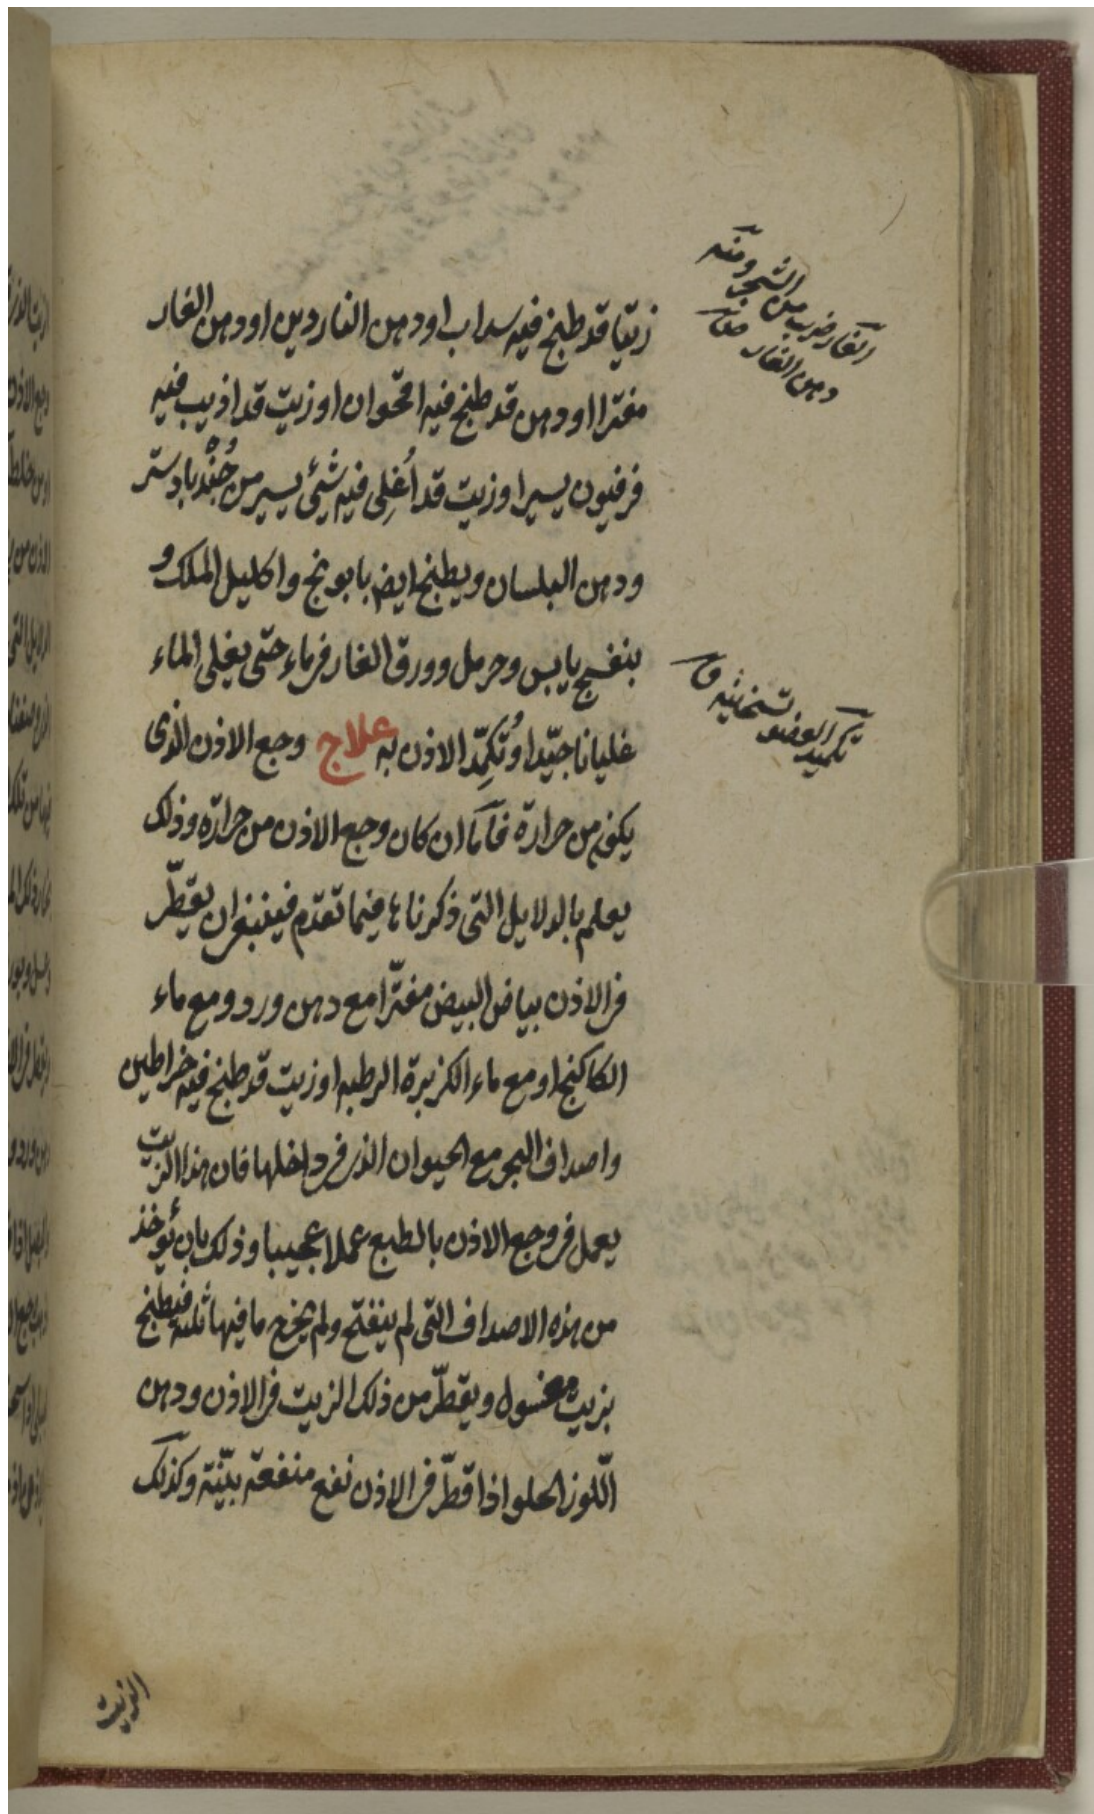 زيتا قد طبخ فيه سداب او دهن الناردين او دهن الغار
مفترا او دهن قد طبخ فيه اقحوان او زيت قد اذيب فيه
فرفيون يسيرا و زيت قد اُغلِى فيه شئ يسير من جُندبادستر
ودهن البلسان ويطبخ ايضا بابونج واكليل الملك و
بنفسج يابس وحرمل وورق الغار فى ماء حتّى يغلى الماء
غليانا جيّدا وتُكمِّد الاذن به علاج وجع الاذن الذى
يكون من حرارة فاما ان كان وجع الاذن من حرارة وذلك
يعلم بالدلايل التى ذكرناها فيما تقدم فينبغى ان يقطّر
فى الاذن بياض البيض مفترّا مع دهن ورد ومع ماء
الكاكنج او مع ماء الكزبرة الرطبه او زيت قد طبخ فيه خراطين
واصداف البحر مع الحيوان الذى فى داخلها فان هذا الزيت
يعمل فى وجع الاذن بالطبع عملا عجيبا وذلك بان يؤخذ
من هذه الاصداف التى لم ينفتح ولم يخرج ما فيها ثلثه فيطبخ
بزيت مغسول ويقطّر من ذلك الزيت فى الاذن ودهن
اللّوز الحلو اذا قطّر فى الاذن نفع منفعة بيّنة وكذلك
الزيت
الغار ضرب من الشجر ومنه
دهن الغار
تكميد العضو تسخينه